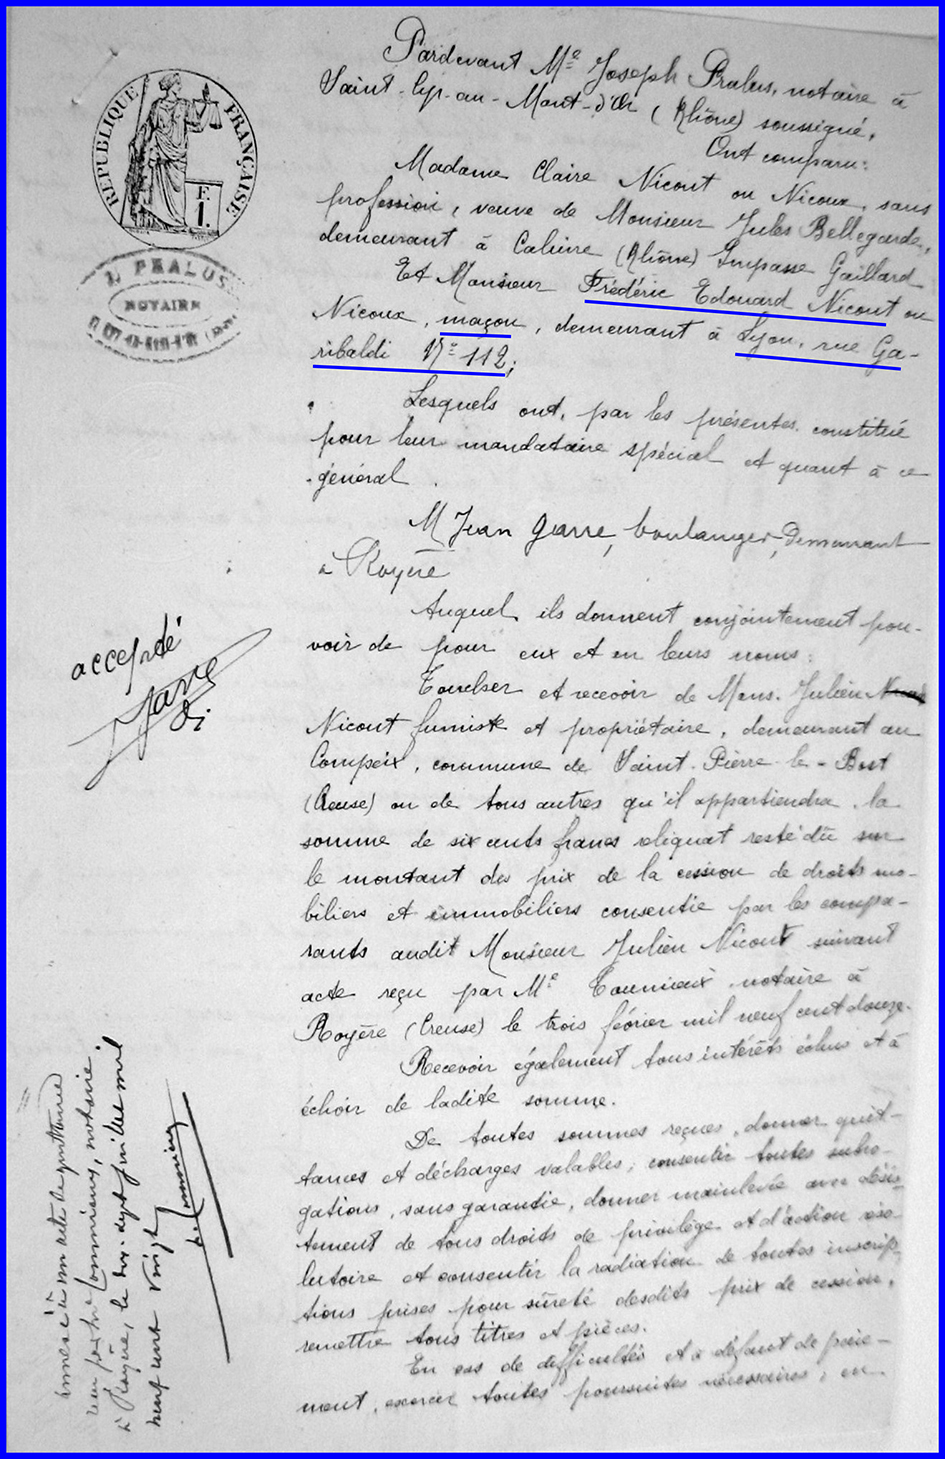 RÉPUBLIQUE FRANÇAISE
F.
1.
J. PRALUS
NOTAIRE
Pardevant Mᵉ Joseph Pralus, notaire à
Saint-Cyr-au-Mont-d'Or (Rhône) soussigné,
Ont comparu:
Madame Claire Nicout ou Nicoux, sans
profession, veuve de Monsieur Jules Bellegarde,
demeurant à Caluire (Rhône) Impasse Gaillard
Et Monsieur Frédéric Edouard Nicout ou
Nicoux, maçon, demeurant à Lyon, rue Ga-
ribaldi Nº 112;
Lesquels ont, par les présentes, constitué
pour leur mandataire spécial et quant à ce
général
M Jean Garre, boulanger, demeurant
à Royère
Auquel ils donnent conjointement pou-
voir de pour eux et en leurs noms:
Toucher et recevoir de Mons. Julien
Nicout fumiste et propriétaire, demeurant au
Compeix, commune de Saint-Pierre-le-Bost
(Creuse) ou de tous autres qu'il appartiendra, la
somme de six cents francs reliquat resté dû sur
le montant des prix de la cession de droits mo-
biliers et immobiliers consentie par les compa-
rants audit Monsieur Julien Nicout suivant
acte reçu par Mᵉ Toumieux notaire à
Royère (Creuse) le trois février mil neuf cent douze.
Recevoir également tous intérêts échus et à
échoir de ladite somme.
De toutes sommes reçues, donner quit-
tances et décharges valables; consentir toutes subro-
gations, sans garantie, donner mainlevée avec désis-
tement de tous droits de privilège et d'action réso-
lutoire et consentir la radiation de toutes inscrip-
tions prises pour sûreté desdits prix de cession,
remettre tous titres et pièces.
En cas de difficultés et à défaut de paie-
ment, exercer toutes poursuites nécessaires; en
accepté
Garre
Annexé à un acte de quittance
reçu par Mᵉ Toumieux, notaire
à Royère, le dix-sept juillet mil
neuf cent vingt